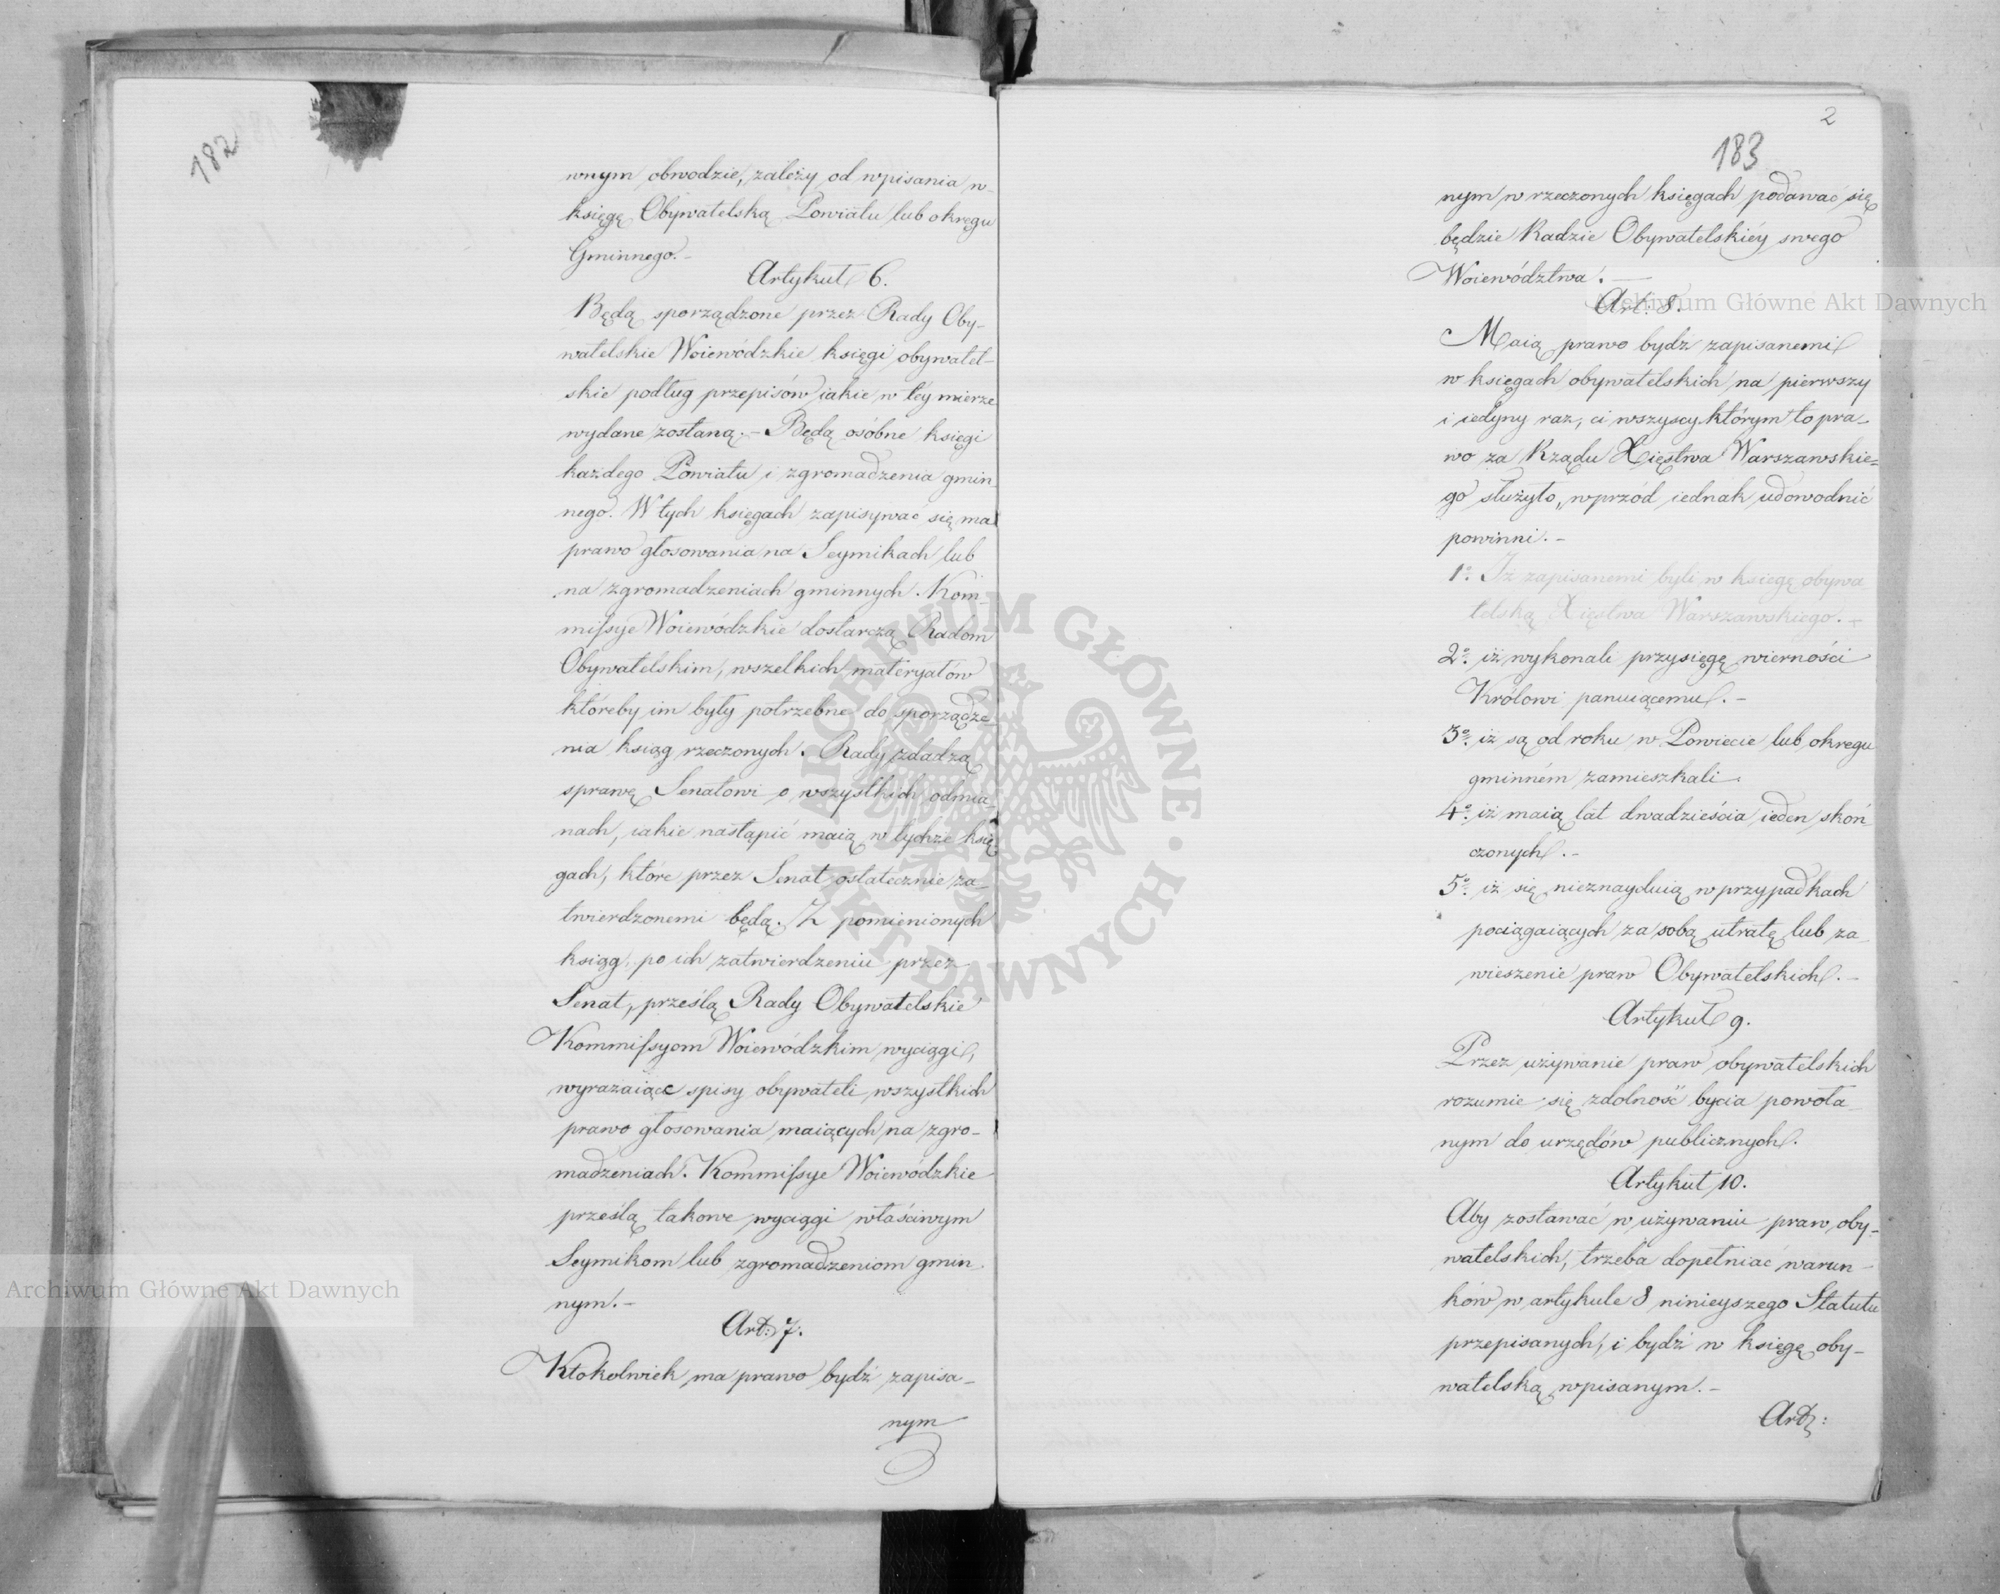 182
wnym obwodzie, zależy od wpisania w-
księgę Obywatelską Powiatu lub okręgu
Gminnego.-
Artykuł 6.
Będą sporządzone przez Rady Oby-
watelskie Woiewódzkie księgi obywatel-
skie podług przepisów iakie w téy mierze
wydane zostaną.- Będą osóbne księgi
każdego Powiatu i zgromadzenia gmin
nego. W tych księgach zapisywać się ma
prawo głosowania na Seymikach lub
na zgromadzeniach gminnych. Kom-
missyje Woiewódzkie dostarczą Radom
Obywatelskim, wszelkich materyałów
któreby im były potrzebne do sporządze-
nia ksiąg rzeczonych. Rady zdadzą
sprawę Senatowi o wszystkich odmia-
nach, iakie nastąpić maią w tychże księ
gach, które przez Senat ostatecznie za-
twierdzonemi będą. Z pomienionych
ksiąg, po ich zatwierdzeniu przez
Senat, prześlą Rady Obywatelskie
Kommissyom Woiewódzkim wyciągi,
wyrażaiące spisy obywateli wszystkich
prawo głosowania maiących na zgro-
madzeniach. Kommissye Woiewódzkie
prześlą takowe wyciągi właściwym
Seymikom lub zgromadzeniom gmin-
nym.-
Art: 7.
Ktokolwiek ma prawo bydź zapisa-
nym
2
183
nym w rzeczonych księgach podawać się
będzie Radzie Obywatelskiéy swego
Woiewództwa.-
Art: 8.
Maią prawo bydź zapisanemi
w księgach obywatelskich na pierwszy
i iedyny raz, ci wszyscy którym to pra-
wo za Rządu Xięstwa Warszawskie=
go służyło, wprzód iednak udowodnić
powinni.-
1o. Iż zapisanemi byli w księgę obywa
telską Xięstwa Warszawskiego.-
2o. iż wykonali przysięgę wierności
Królowi panuiącemu.-
3o. iż są od roku w Powiecie lub okręgu
gminném zamieszkali.
4o. iż maią lat dwadzieścia ieden skoń
czonych.-
5o. iż się nieznayduią w przypadkach
pociągaiących za sobą utratę lub za-
wieszenie praw Obywatelskich.-
Artykuł 9.
Przez używanie praw obywatelskich
rozumie się zdolność bycia powoła-
nym do urzędów publicznych.
Artykuł 10.
Aby zostawać w używaniu praw oby-
watelskich, trzeba dopełniać warun-
ków w artykule 8 ninieyszego Statutu
przepisanych, i bydź w księgę oby-
watelską wpisanym.-
Art:
Archiwum Główne Akt Dawnych
Archiwum Główne Akt Dawnych
ARCHIWUM GŁÓWNE AKT DAWNYCH